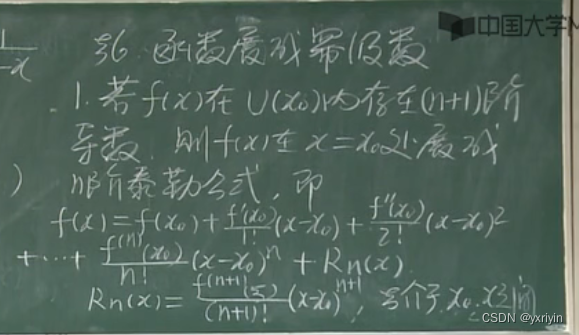 中国大学M
§6. 函数展成幂级数
1. 若 f(x) 在 U(x₀) 内存在 (n+1) 阶
导数, 则 f(x) 在 x = x₀ 处展成
n阶泰勒公式, 即
f(x) = f(x₀) + f'(x₀)/1! (x-x₀) + f''(x₀)/2! (x-x₀)²
+ ··· + f⁽ⁿ⁾(x₀)/n! (x-x₀)ⁿ + Rn(x)
Rn(x) = f⁽ⁿ⁺¹⁾(ξ)/(n+1)! (x-x₀)ⁿ⁺¹, ξ介于 x₀, x之间
CSDN @yxriyin